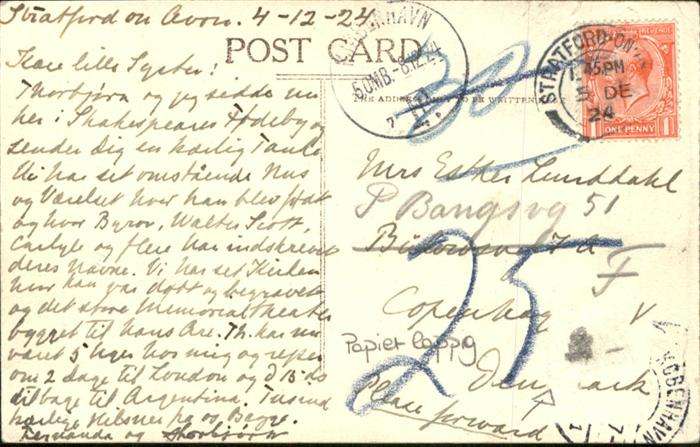 Stratford on Avon. 4-12-24
POST CARD
Kære lille Syster!
Thorbjørn og jeg sidde nu
her i Shakespeares Fødeby og
sender Dig en kærlig Tanke
Vi har set omstående Hus
og Værelset hvor han blev født
og hvor Byron, Walter Scott,
Carlyle og flere har indskrevet
deres Navne. Vi har set Kirken
hvor han var døbt og begravet
og det store Memorial theater
bygget til hans Ære. Th. har nu
været 5 Uger hos mig og rejser
om 2 Dage til London og d 15
tilbage til Argentina. Tusind
kærlige Hilsner fra os Begge.
Fernanda og Thorbjørn
KØBENHAVN
5.OMB.-8.12.24
30
STRATFORD-ON-
1.45PM
5 DE
24
ONE PENNY
Mrs Esther Lunddahl
P Bangsvg 51
F
Copenhag V
25
Papier lappig
Den ark
Please forward
KØBENHAVN